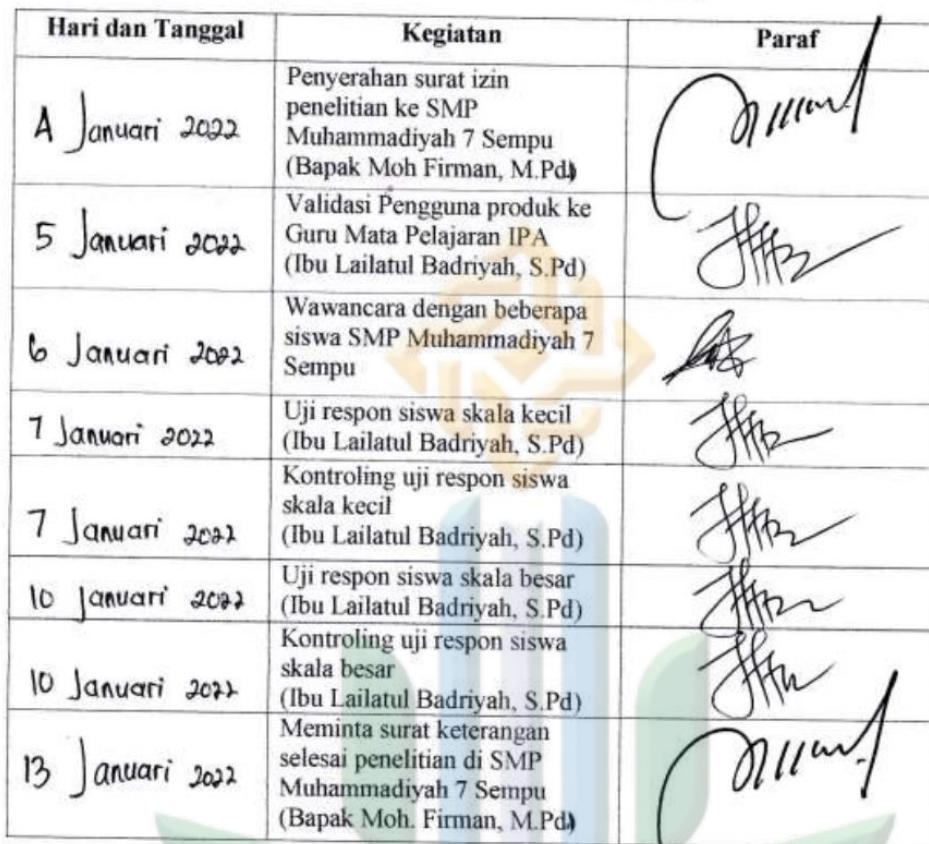 Hari dan Tanggal Kegiatan Paraf
4 Januari 2022
Penyerahan surat izin
penelitian ke SMP
Muhammadiyah 7 Sempu
(Bapak Moh Firman, M.Pd)
5 Januari 2022
Validasi Pengguna produk ke
Guru Mata Pelajaran IPA
(Ibu Lailatul Badriyah, S.Pd)
6 Januari 2022
Wawancara dengan beberapa
siswa SMP Muhammadiyah 7
Sempu
7 Januari 2022
Uji respon siswa skala kecil
(Ibu Lailatul Badriyah, S.Pd)
7 Januari 2022
Kontroling uji respon siswa
skala kecil
(Ibu Lailatul Badriyah, S.Pd)
10 Januari 2022
Uji respon siswa skala besar
(Ibu Lailatul Badriyah, S.Pd)
10 Januari 2022
Kontroling uji respon siswa
skala besar
(Ibu Lailatul Badriyah, S.Pd)
13 Januari 2022
Meminta surat keterangan
selesai penelitian di SMP
Muhammadiyah 7 Sempu
(Bapak Moh. Firman, M.Pd)